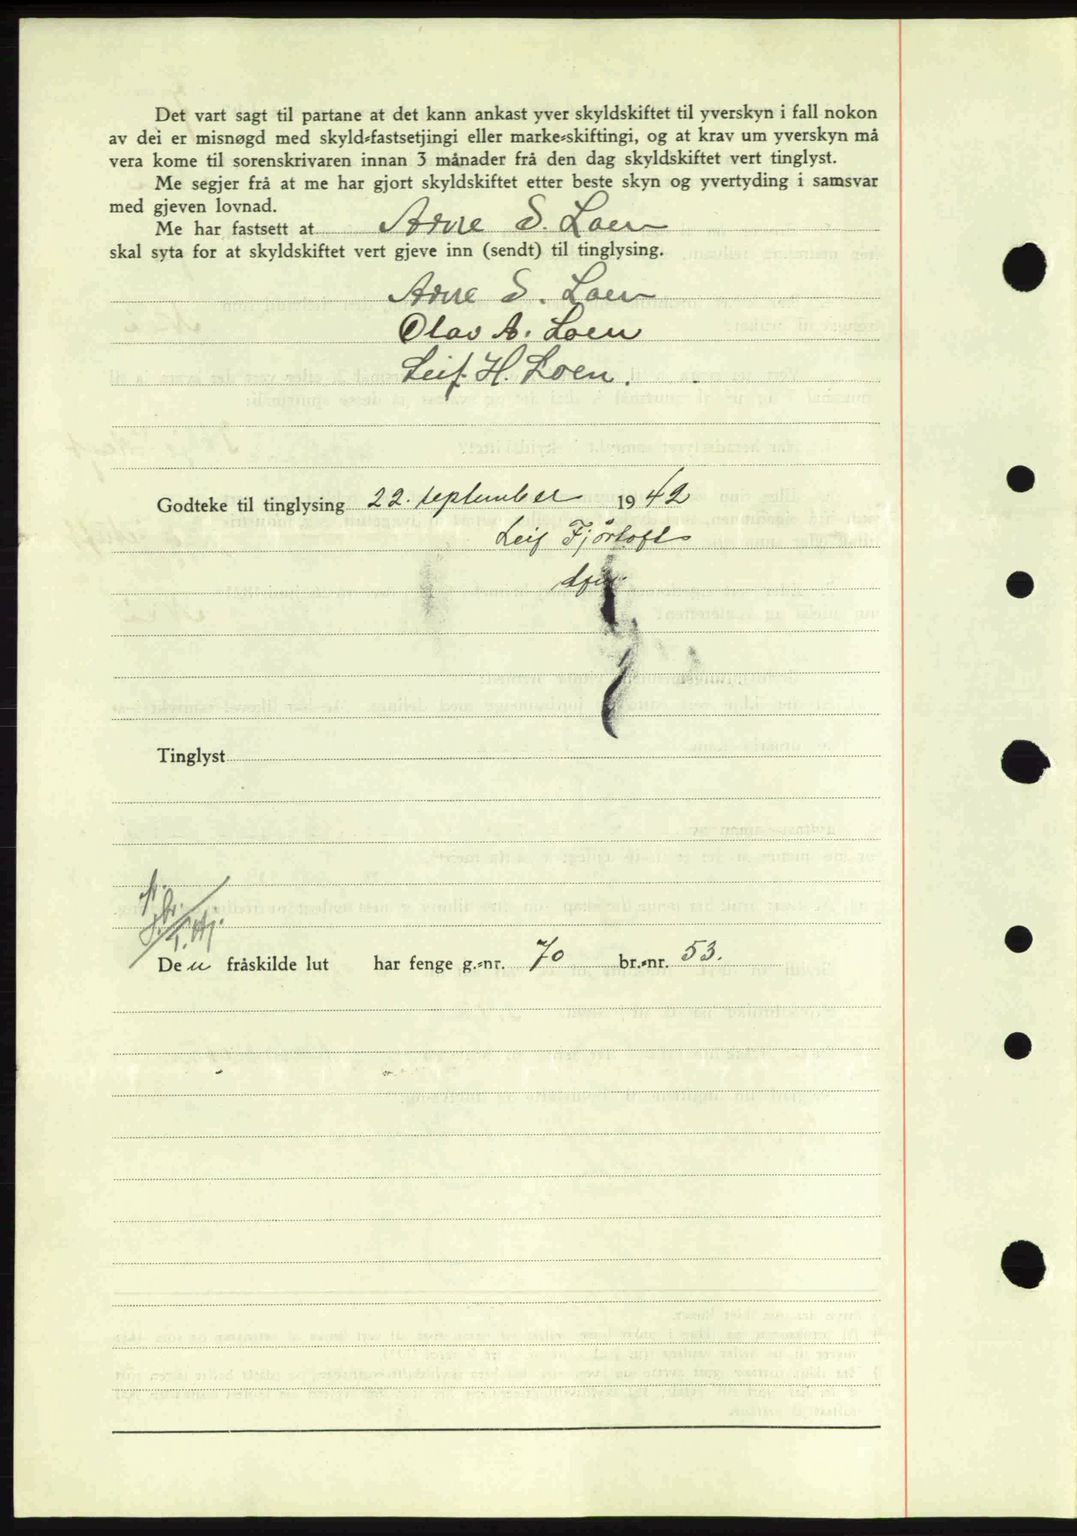 Det vart sagt til partane at det kann ankast yver skyldskiftet til yverskyn i fall nokon
av dei er misnøgd med skyld-fastsetjingi eller marke-skiftingi, og at krav um yverskyn må
vera kome til sorenskrivaren innan 3 månader frå den dag skyldskiftet vert tinglyst.
Me segjer frå at me har gjort skyldskiftet etter beste skyn og yvertyding i samsvar
med gjeven lovnad.
Me har fastsett at Arne S. Loen
skal syta for at skyldskiftet vert gjeve inn (sendt) til tinglysing.
Arne S. Loen
Olav A. Loen
Leif H. Loen.
Godteke til tinglysing 22. september 1942
Leif Fjørtoft
Tinglyst
Den fråskilde lut har fenge g.-nr. 70 br.-nr. 53.